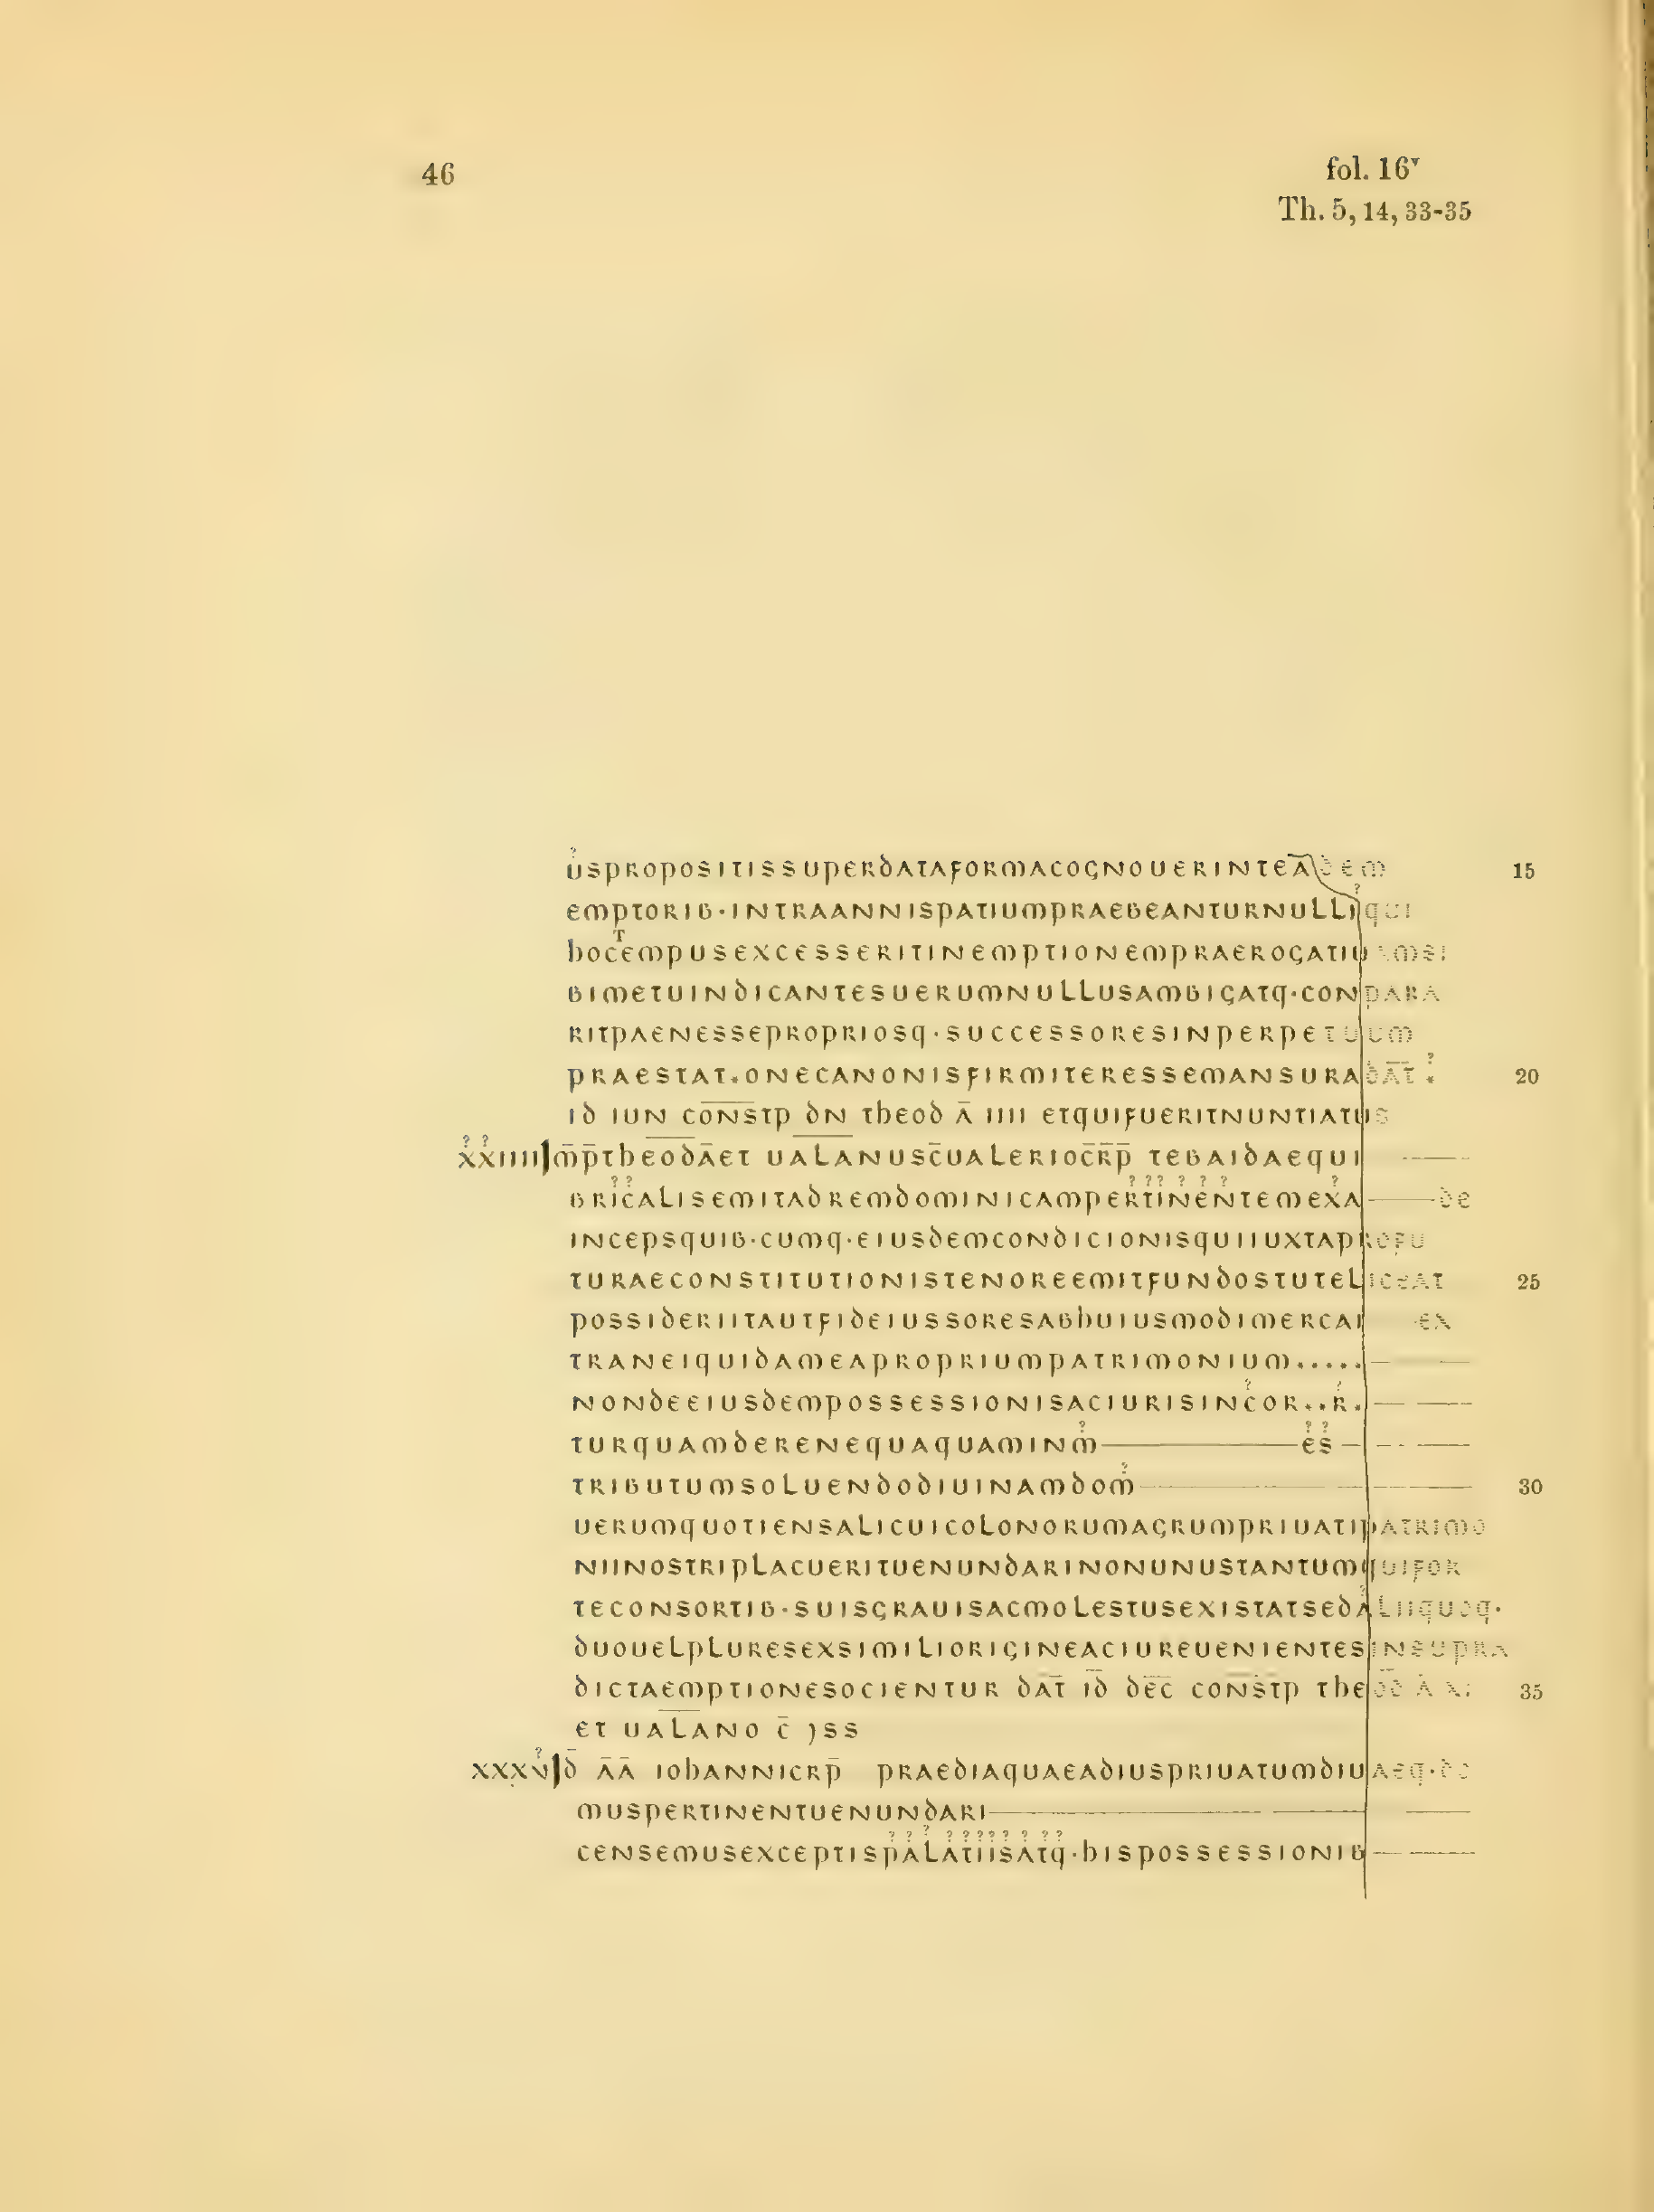 46
fol. 16ᵛ
Th. 5, 14, 33-35
USPROPOSITISSUPERDATAFORMACOGNOUERINTEADEM 15
EMPTORIB·INTRAANNISPATIUMPRAEBEANTURNULLIQUI
hOCTEMPUSEXCESSERITINEMPTIONEMPRAEROGATIU MSI
BIMETUINDICANTESUERUMNULLUSAMBIGATQ·CONPARA
RITPAENESSEPROPRIOSQ·SUCCESSORESINPERPETUUM
PRAESTAT.ONECANONISFIRMITERESSEMANSURADAT 20
ID IUN CONSTP DN THEOD A IIII ETQUIFUERITNUNTIATUS
XXIIII MPTHEODAET UALANUSCUALERIOCRP TEBAIDAEQUI
BRICALISEMITADREMDOMINICAMPERTINENTEMEXA DE
INCEPSQUIB·CUMQ·EIUSDEMCONDICIONISQUIIUXTAPROFU
TURAECONSTITUTIONISTENOREEMITFUNDOSTUTELICEAT 25
POSSIDERIITAUTFIDEIUSSORESABHUIUSMODIMERCAI EX
TRANEIQUIDAMEAPROPRIUMPATRIMONIUM.....
NONDEEIUSDEMPOSSESSIONISACIURISINCOR..R.
TURQUAMDERENEQUAQUAMINM ES
TRIBUTUMSOLUENDODIUINAMDOM 30
UERUMQUOTIENSALICUICOLONORUMAGRUMPRIUATIPATRIMO
NIINOSTRIPLACUERITUENUNDARINONUNUSTANTUMQUIFOR
TECONSORTIB·SUISGRAUISACMOLESTUSEXISTATSEDALIIQUOQ·
DUOUELPLURESEXSIMILIORIGINEACIUREUENIENTESINSUPRA
DICTAEMPTIONESOCIENTUR DAT ID DEC CONSTP THEOD A XI 35
ET UALANO C )SS
XXXV D AA IOHANNICRP PRAEDIAQUAEADIUSPRIUATUMDIUAEQ·DO
MUSPERTINENTUENUNDARI
CENSEMUSEXCEPTISPALATIISATQ·HISPOSSESSIONIB